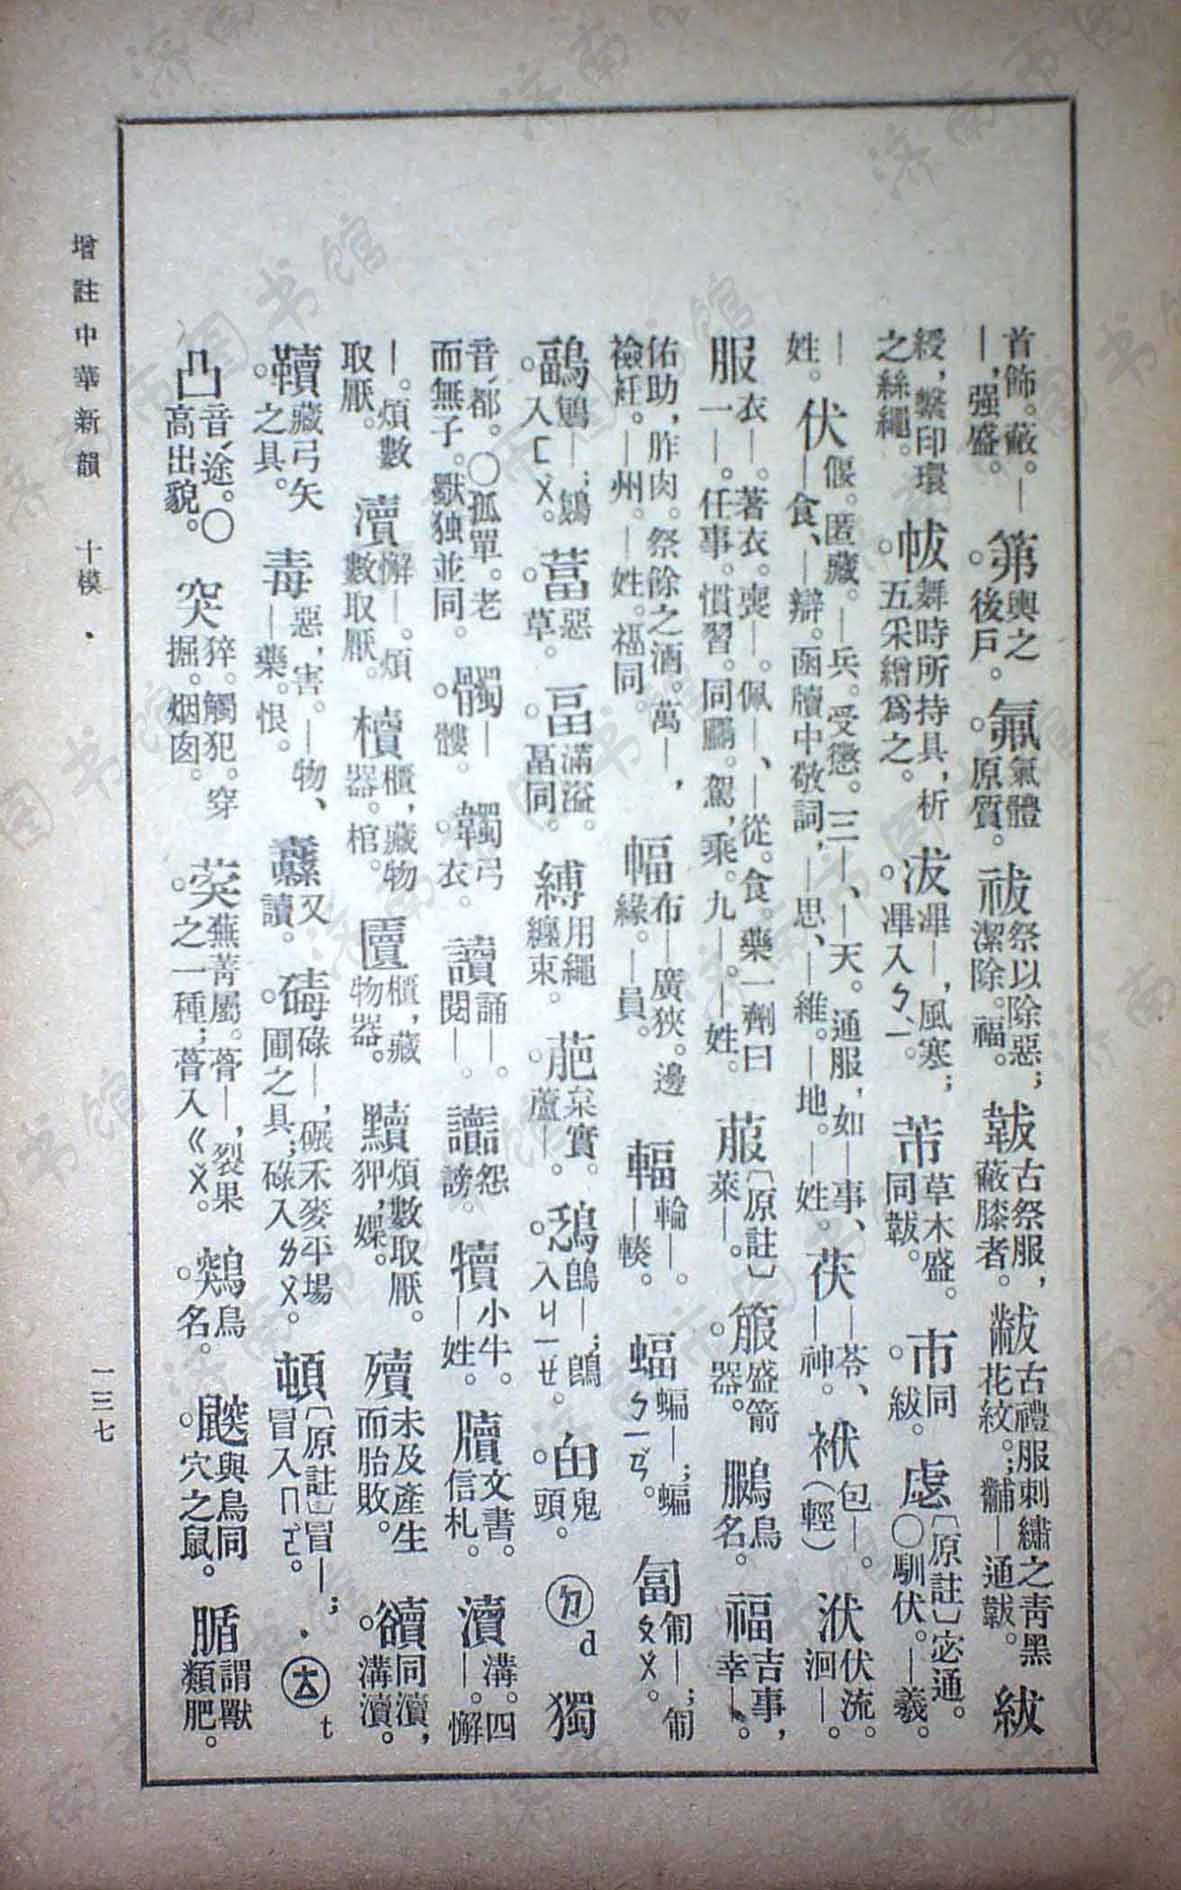 首飾。蔽。—
—，强盛。 第輿之
後戶。 氟氣體
原質。 祓祭以除惡；
潔除。福。 韍古祭服，
蔽膝者。 黻古禮服刺繡之青黑
花紋。；黼—通韍。 紱
綬，繫印環
之絲繩。 帗舞時所持具，析
五采繒爲之。 冹滭—，風寒；
滭入ㄅㄧ。 芾草木盛。
同韍。 巿同
紱。 虙〔原註〕宓通。
〇馴伏。—羲。
—
姓。 伏偃。匿藏。—兵。受懲。三—、—天。通服，如—事、
—食、—辯。函牘中敬詞，—思、—維。—地。—姓。 茯—苓、
—神。 袱包—。
（輕） 洑伏流。
洄—。
服衣—。著衣。喪—。佩—、—從。食。藥一劑曰
一—。任事。慣習。同鵩。駕，乘。九—。—姓。 菔〔原註〕
萊—。 箙盛箭
器。 鵩鳥
名。 福吉事，
幸—。
佑助，胙肉。祭餘之酒。萬—，
襝衽。—州。—姓。福同。 幅布—廣狹。邊
緣。—員。 輻輪—。
—輳。 蝠蝙—；蝙
ㄅㄧㄢ。 匐匍—；匍
ㄆㄨ。
鶝鴔—；鴔
入ㄈㄨ。 葍惡
草。 畐滿溢。
畗同。 縛用繩
纏束。 萉枲實。
蘆—。 鵖—；
入ㄐㄧㄝ。 甶鬼
頭。 ㄉd 獨
音都。〇孤單。老
而無子。獸独並同。 髑—
髏。 韣弓
衣。 讀誦—。
閱—。 讟怨
謗。 犢小牛。
—姓。 牘文書。
信札。 瀆溝。四
—。懈
—。煩數
取厭。 瀆懈—。煩
數取厭。 櫝櫃，藏物
器。棺。 匵櫃，藏
物器。 黷煩數取厭。
狎，媟。 殰未及產生
而胎敗。 䜱同瀆，
溝瀆。
韇藏弓矢
之具。 毒惡，害。—物、
—藥。恨。 纛又
讀。 碡碌—，碾禾麥平場
圃之具；碌入ㄌㄨ。 頓〔原註〕冒—；
冒入ㄇㄛ。 ㄊt
凸音途。〇
高出貌。 突猝。觸犯。穿
掘。烟囱。 葖蕪菁屬。蓇—，裂果
之一種；蓇入ㄍㄨ。 鶟鳥
名。 鼵與鳥同
穴之鼠。 腯謂獸
類肥。
增註中華新韻 十模
一三七